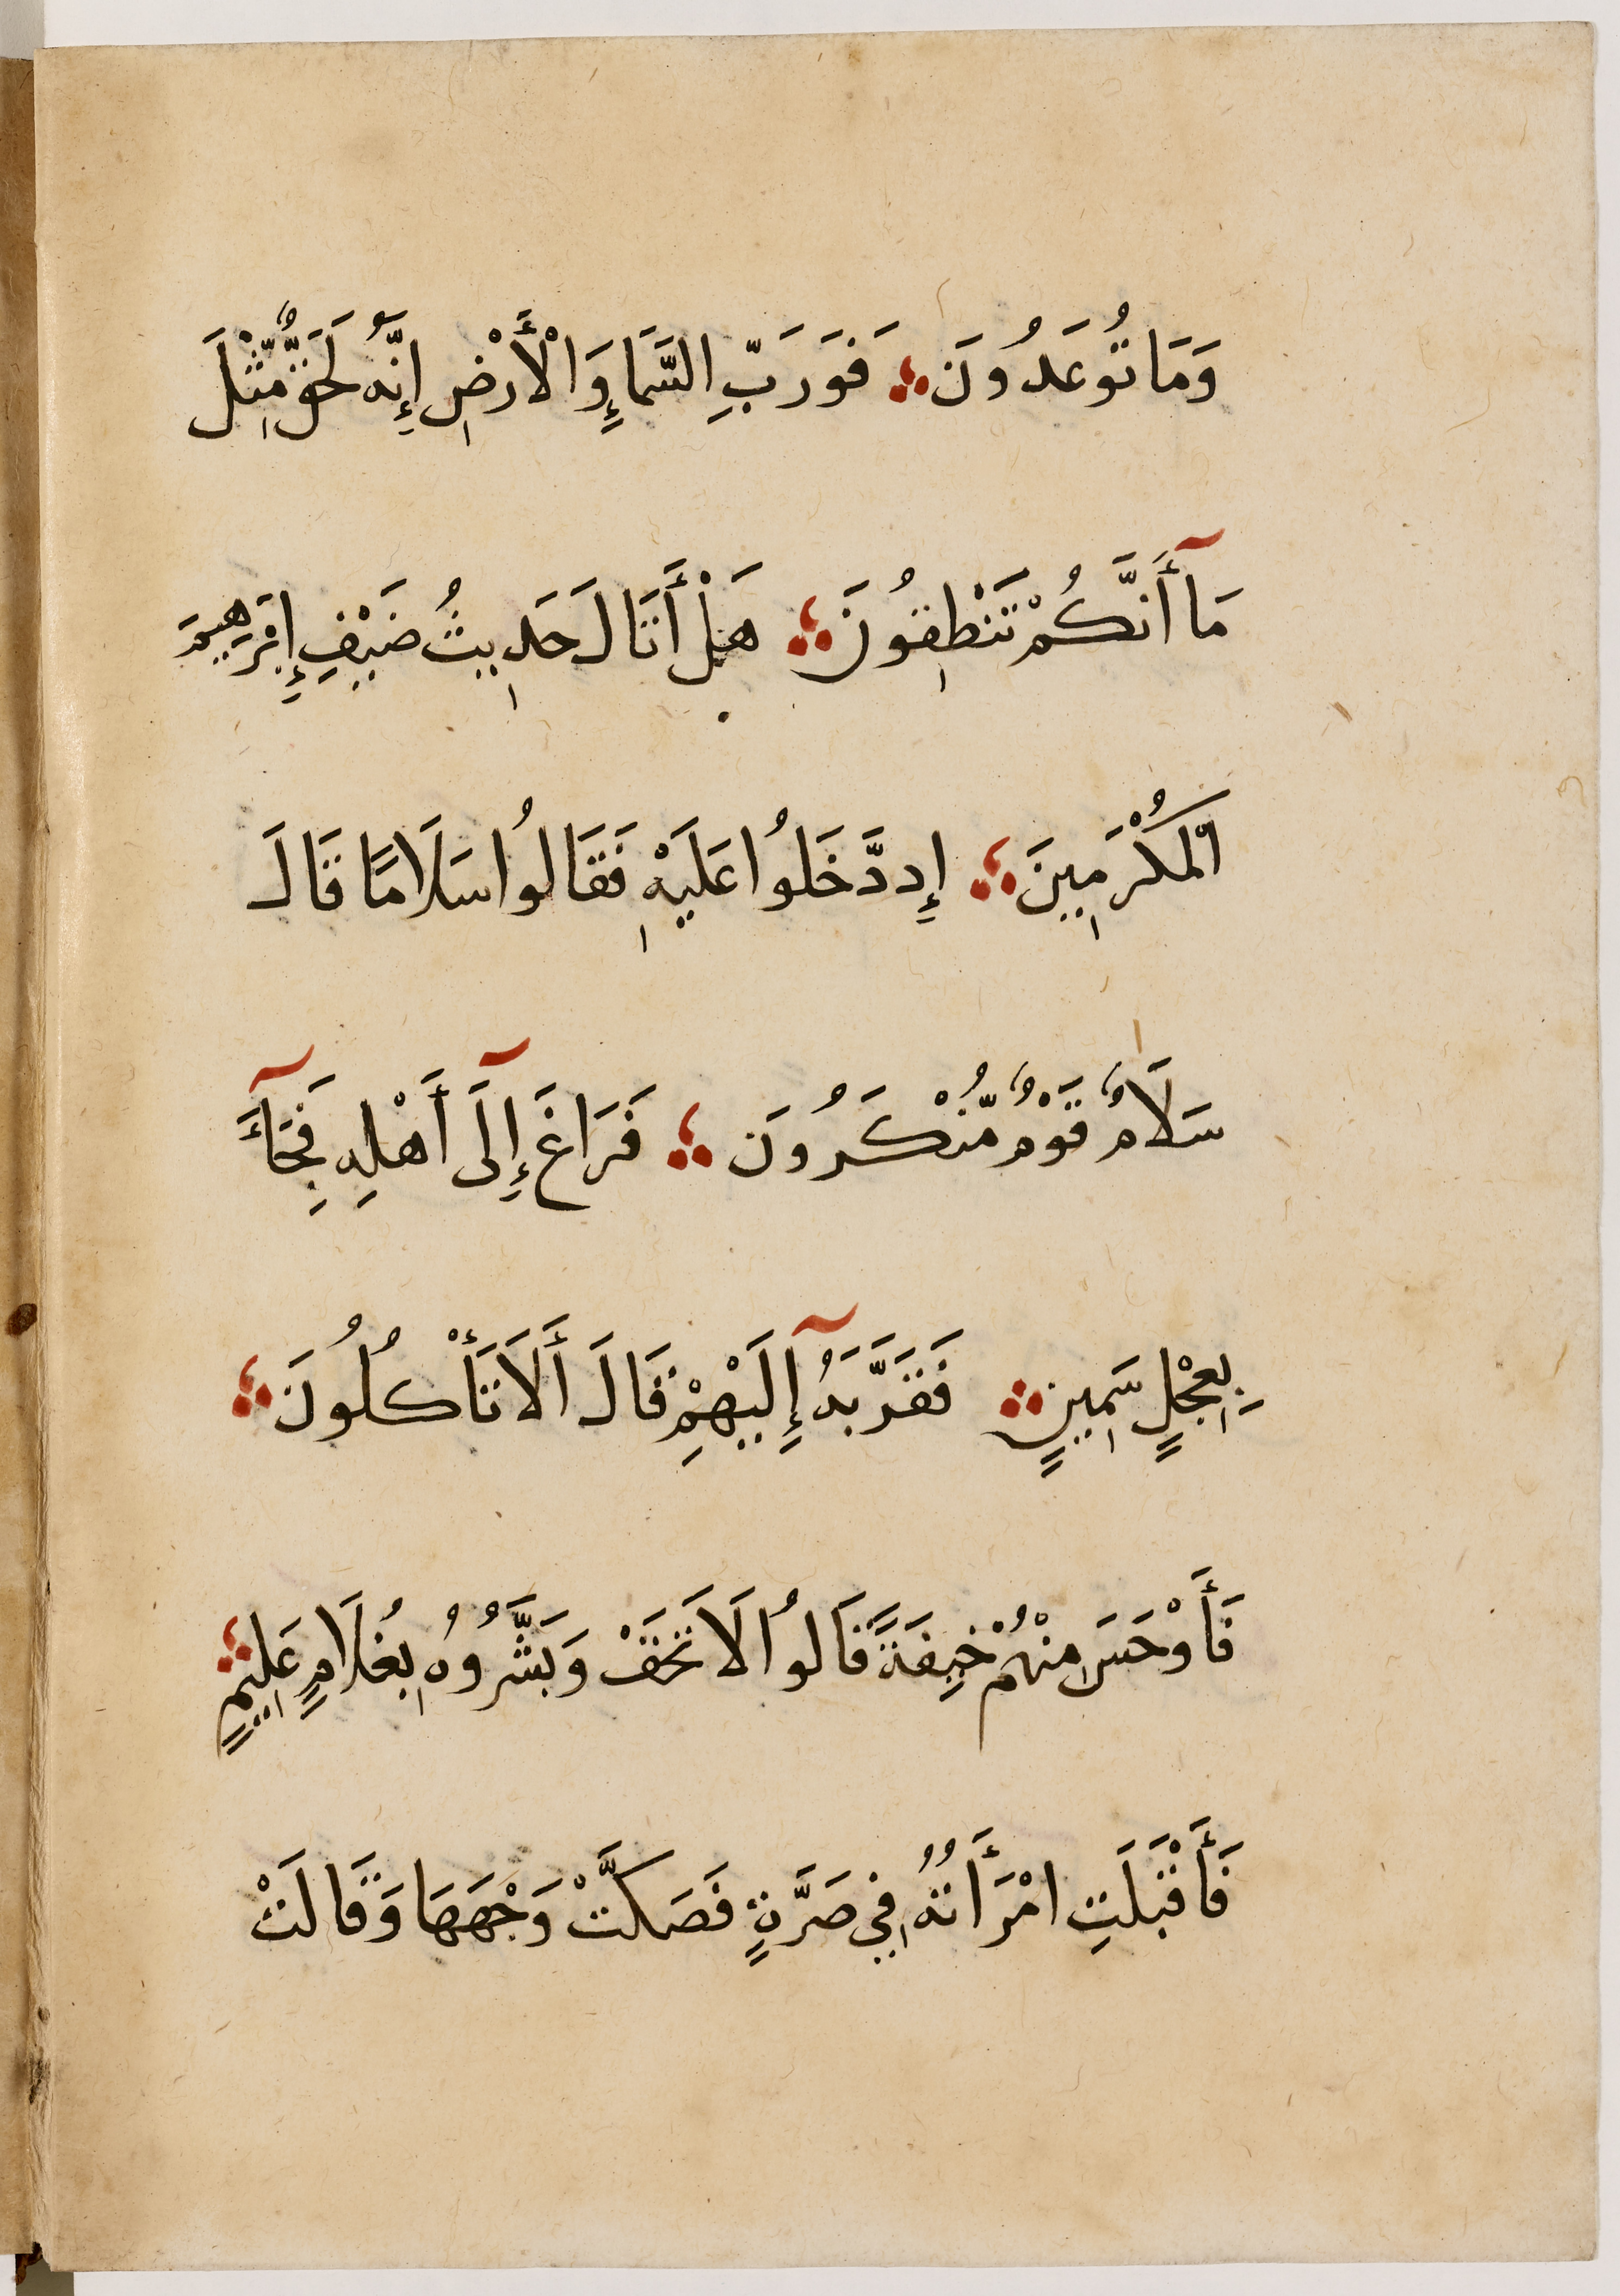 وَمَا تُوعَدُونَ فَوَرَبِّ السَّمَاءِ وَالْأَرْضِ إِنَّهُ لَحَقٌّ مِّثْلَ
مَآ أَنَّكُمْ تَنْطِقُونَ هَلْ أَتَالَ حَدِيثُ ضَيْفِ إِبْرَهِيمَ
الْمُكْرَمِينَ إِددَّخَلُوا عَلَيْهِ فَقَالُوا سَلَامًا قَالَ
سَلَامٌ قَوْمٌ مُّنْكَرُونَ فَرَاغَ إِلَىٓ أَهْلِهِ فَجَآءَ
بِعِجْلٍ سَمِينٍ فَقَرَّبَهُٓ إِلَيْهِمْ قَالَ أَلَا تَأْكُلُونَ
فَأَوْحَسَ مِنْهُمْ خِيفَةً قَالُوا لَا تَخَفْ وَبَشَّرُوهُ بِغُلَامٍ عَلِيمٍ
فَأَقْبَلَتِ امْرَأَتُهُ فِي صَرَّةٍ فَصَكَّتْ وَجْهَهَا وَقَالَتْ